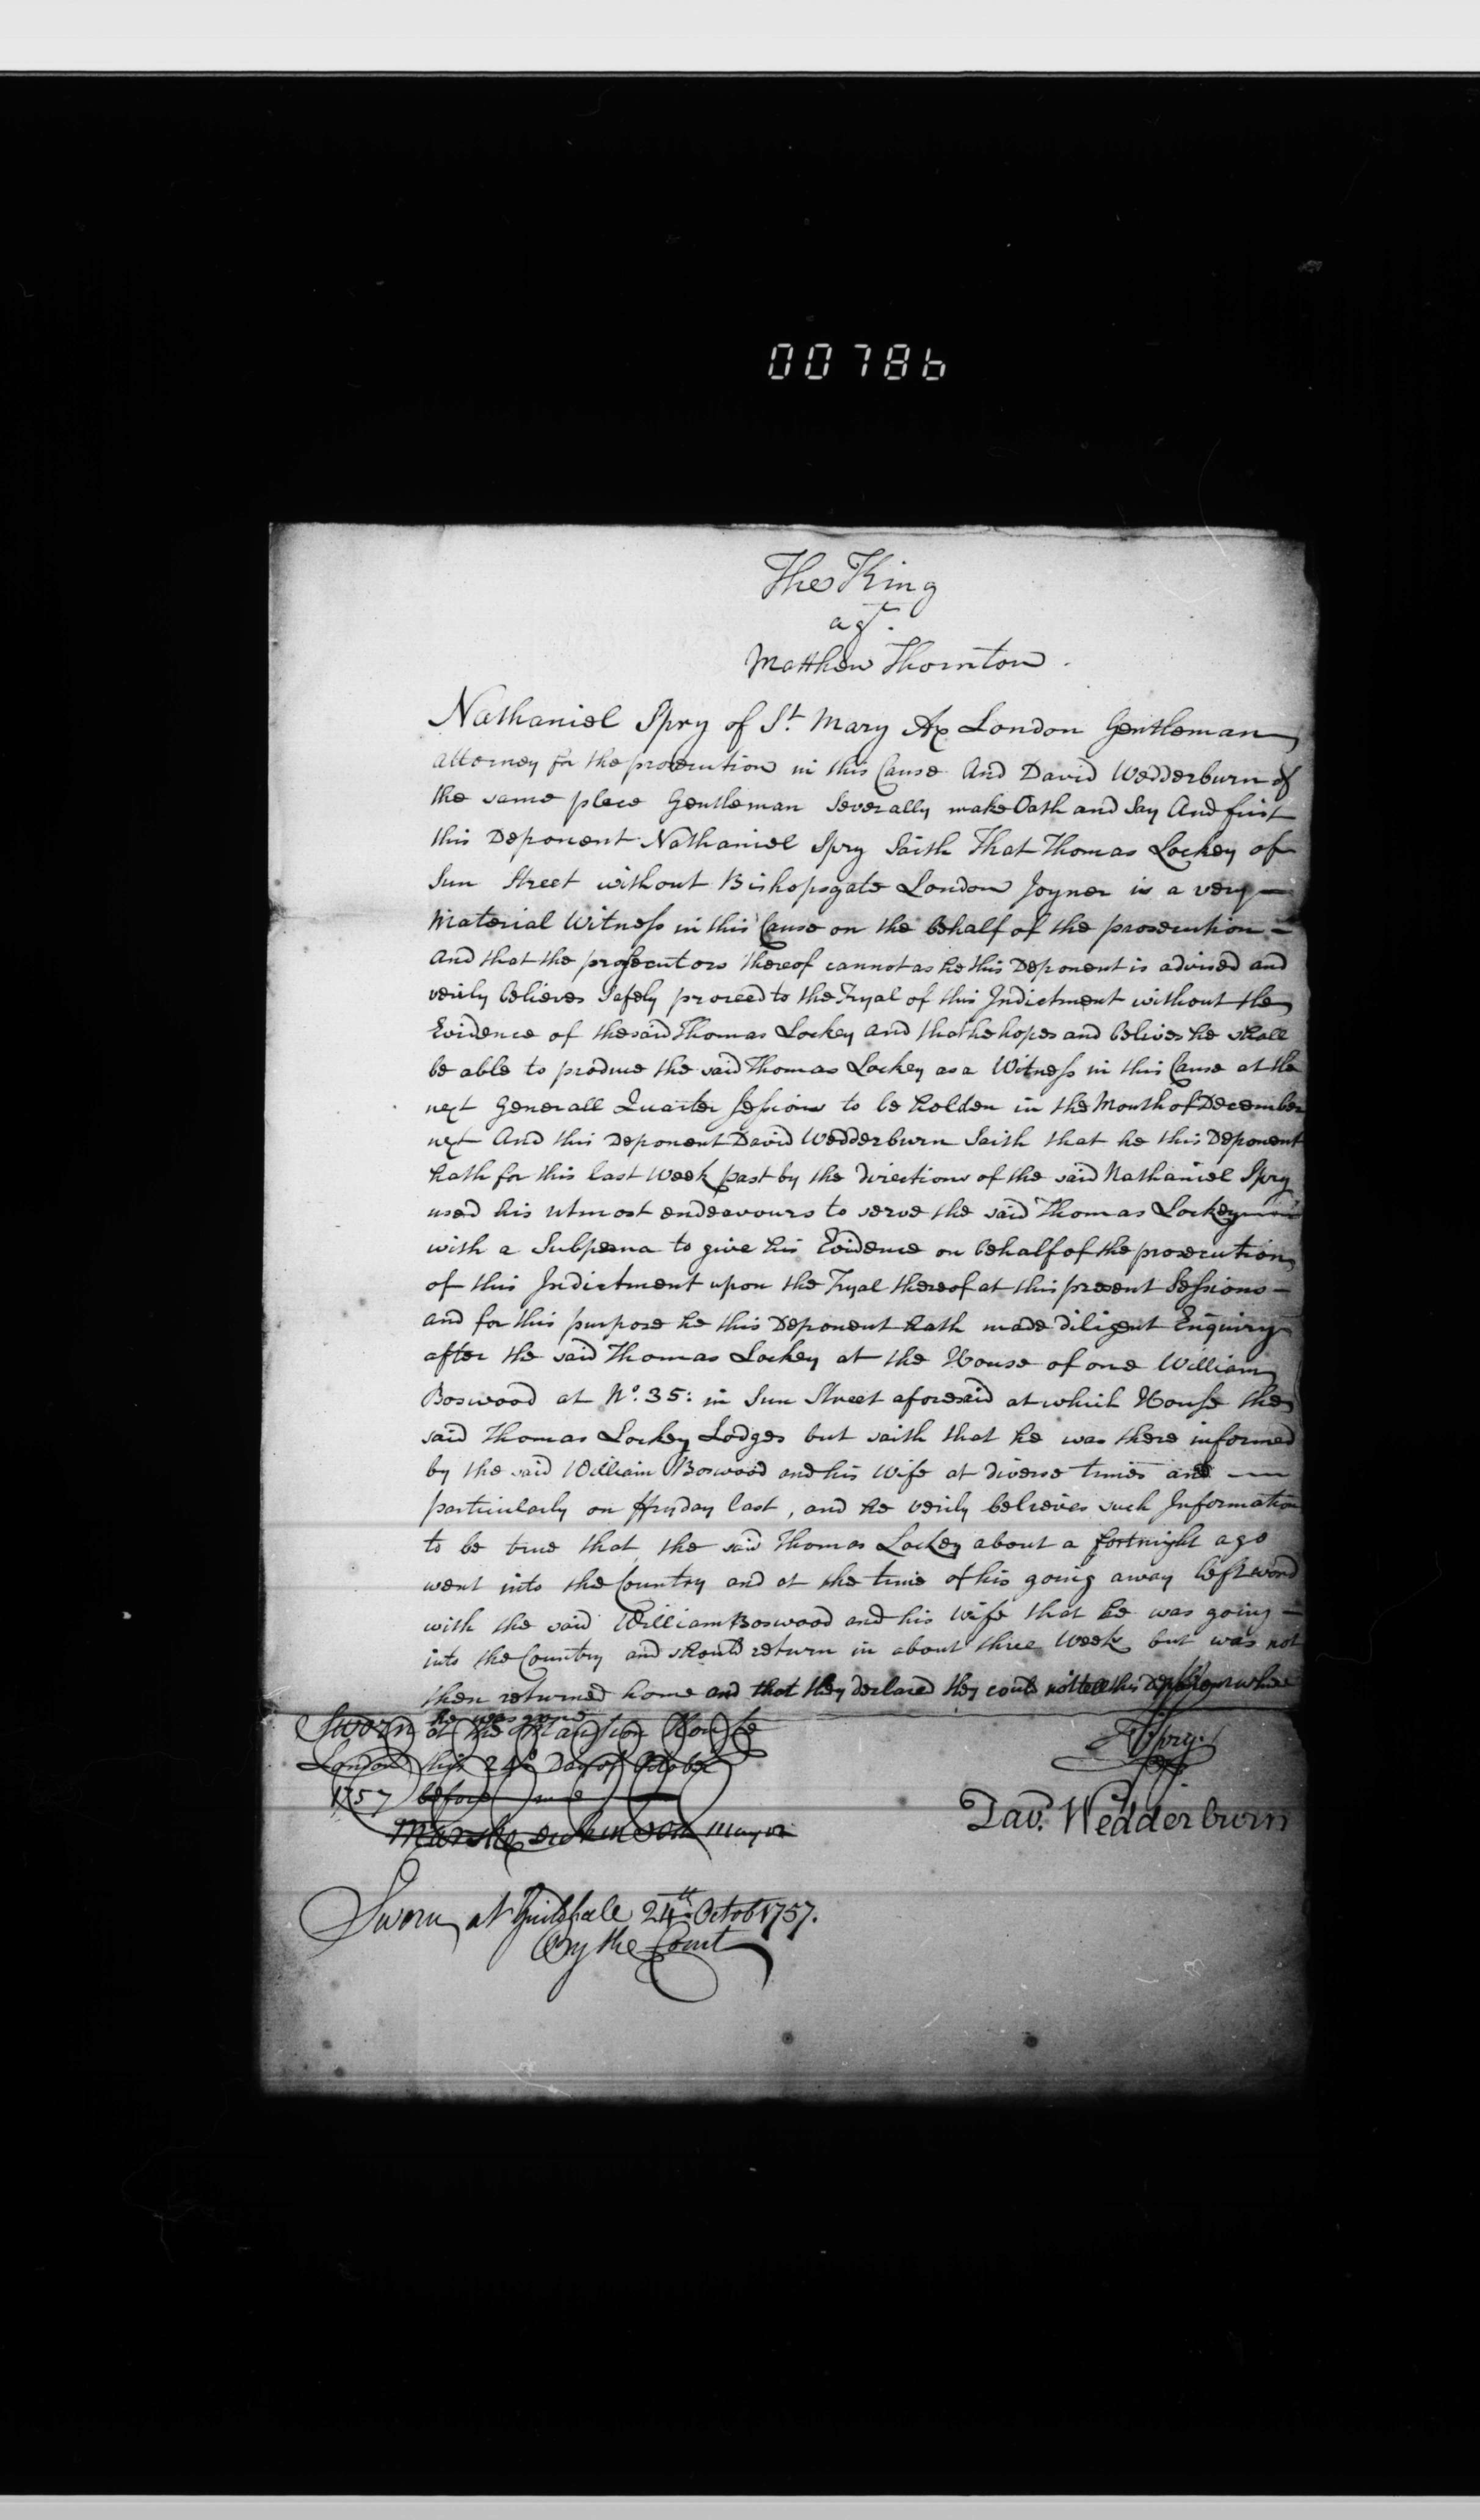 00786
The King
agt.
Matthew Thornton.
Nathaniel Spry of St. Mary Ax London Gentleman
attorney for the prosecution in this Cause And David Wedderburn of
the same place Gentleman Severally make Oath and Say And first
this Deponent Nathaniel Spry Saith That Thomas Lockey of
Sun Street without Bishopsgate London Joyner is a very
Material Witness in this Cause on the behalf of the prosecution
And that the prosecutors thereof cannot as he this Deponent is advised and
verily believes Safely proceed to the Tryal of this Indictment without the
Evidence of the said Thomas Lockey and that he hopes and believes he shall
be able to produce the said Thomas Lockey as a Witness in this Cause at the
next Generall Quarter Sessions to be holden in the Month of December
next And this Deponent David Wedderburn Saith that he this Deponent
hath for this last Week past by the directions of the said Nathaniel Spry
used his utmost endeavours to serve the said Thomas Lockey
with a Subpena to give his Evidence on behalf of the prosecution
of this Indictment upon the Tryal thereof at this present Sessions
and for this purpose he this Deponent hath made diligent Enquiry
after the said Thomas Lockey at the House of one William
Boswood at No. 35: in Sun Street aforesaid at which House the
said Thomas Lockey Lodges but saith that he was there informed
by the said William Boswood and his Wife at diverse times and
particularly on ffryday last, and he verily believes such Information
to be true that the said Thomas Lockey about a fortnight ago
went into the Country and at the time of his going away left word
with the said William Boswood and his Wife that he was going
into the Country and should return in about three Weeks but was not
then returned home and that they declared they could not tell this Deponent where
he was gone
Sworn at the Mansion House
London this 24th Day of October
1757 before me
Marshe Dickinson Mayor
Spry.
Dav. Wedderburn
Sworn at Guildhall 24th Octob 1757.
By the Court